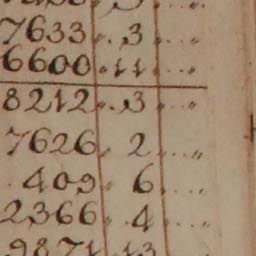 7633 .. 3 .. "
6600 .. 11 .. "
8212 .. 3 .. "
7626 .. 2 .. "
409 .. 6 .. "
2366 .. 4 .. "
9871 .. 13